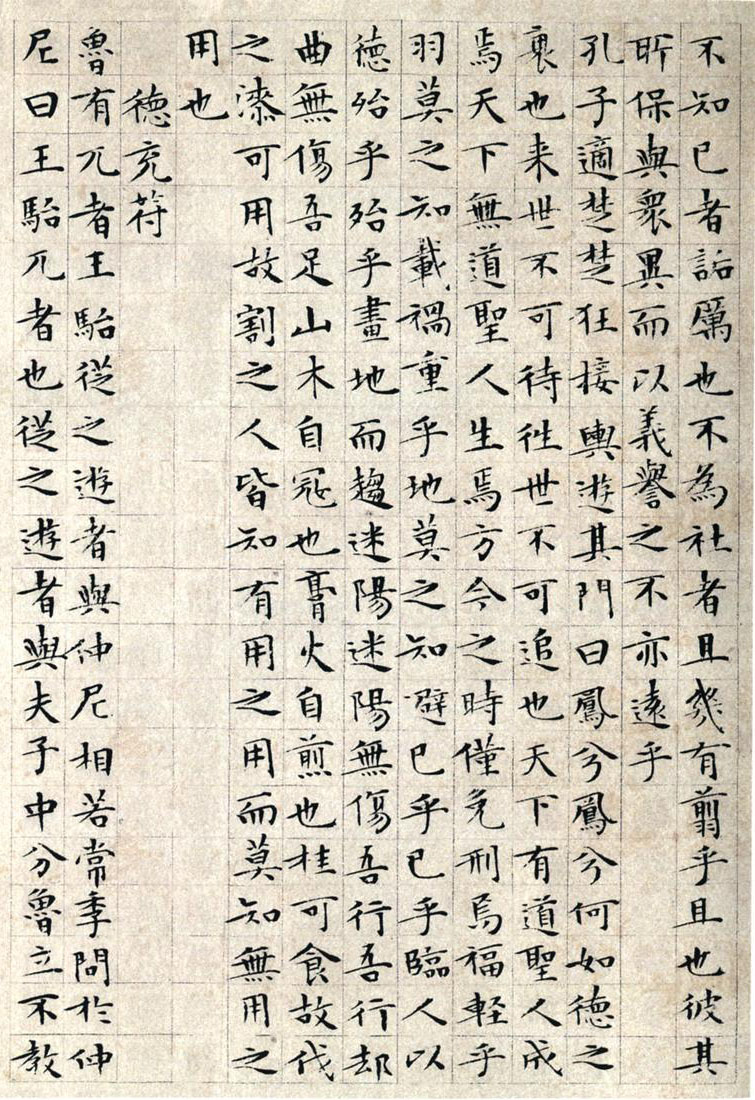 不知已者詬厲也不為社者且幾有翦乎且也彼其
所保與衆異而以義譽之不亦遠乎
孔子適楚楚狂接輿遊其門曰鳳兮鳳兮何如德之
衰也来世不可待往世不可追也天下有道聖人成
焉天下無道聖人生焉方今之時僅免刑焉福軽乎
羽莫之知載禍重乎地莫之知避已乎已乎臨人以
德殆乎殆乎畫地而趨迷陽迷陽無傷吾行吾行却
曲無傷吾足山木自冦也膏火自煎也桂可食故伐
之漆可用故割之人皆知有用之用而莫知無用之
用也
德充符
魯有兀者王駘從之遊者與仲尼相若常季問於仲
尼曰王駘兀者也從之遊者與夫子中分魯立不教